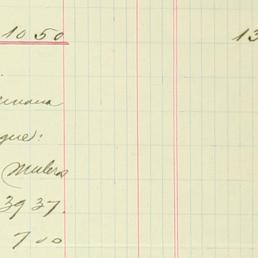 10 50 13
gue:
Muleros
3937.
700